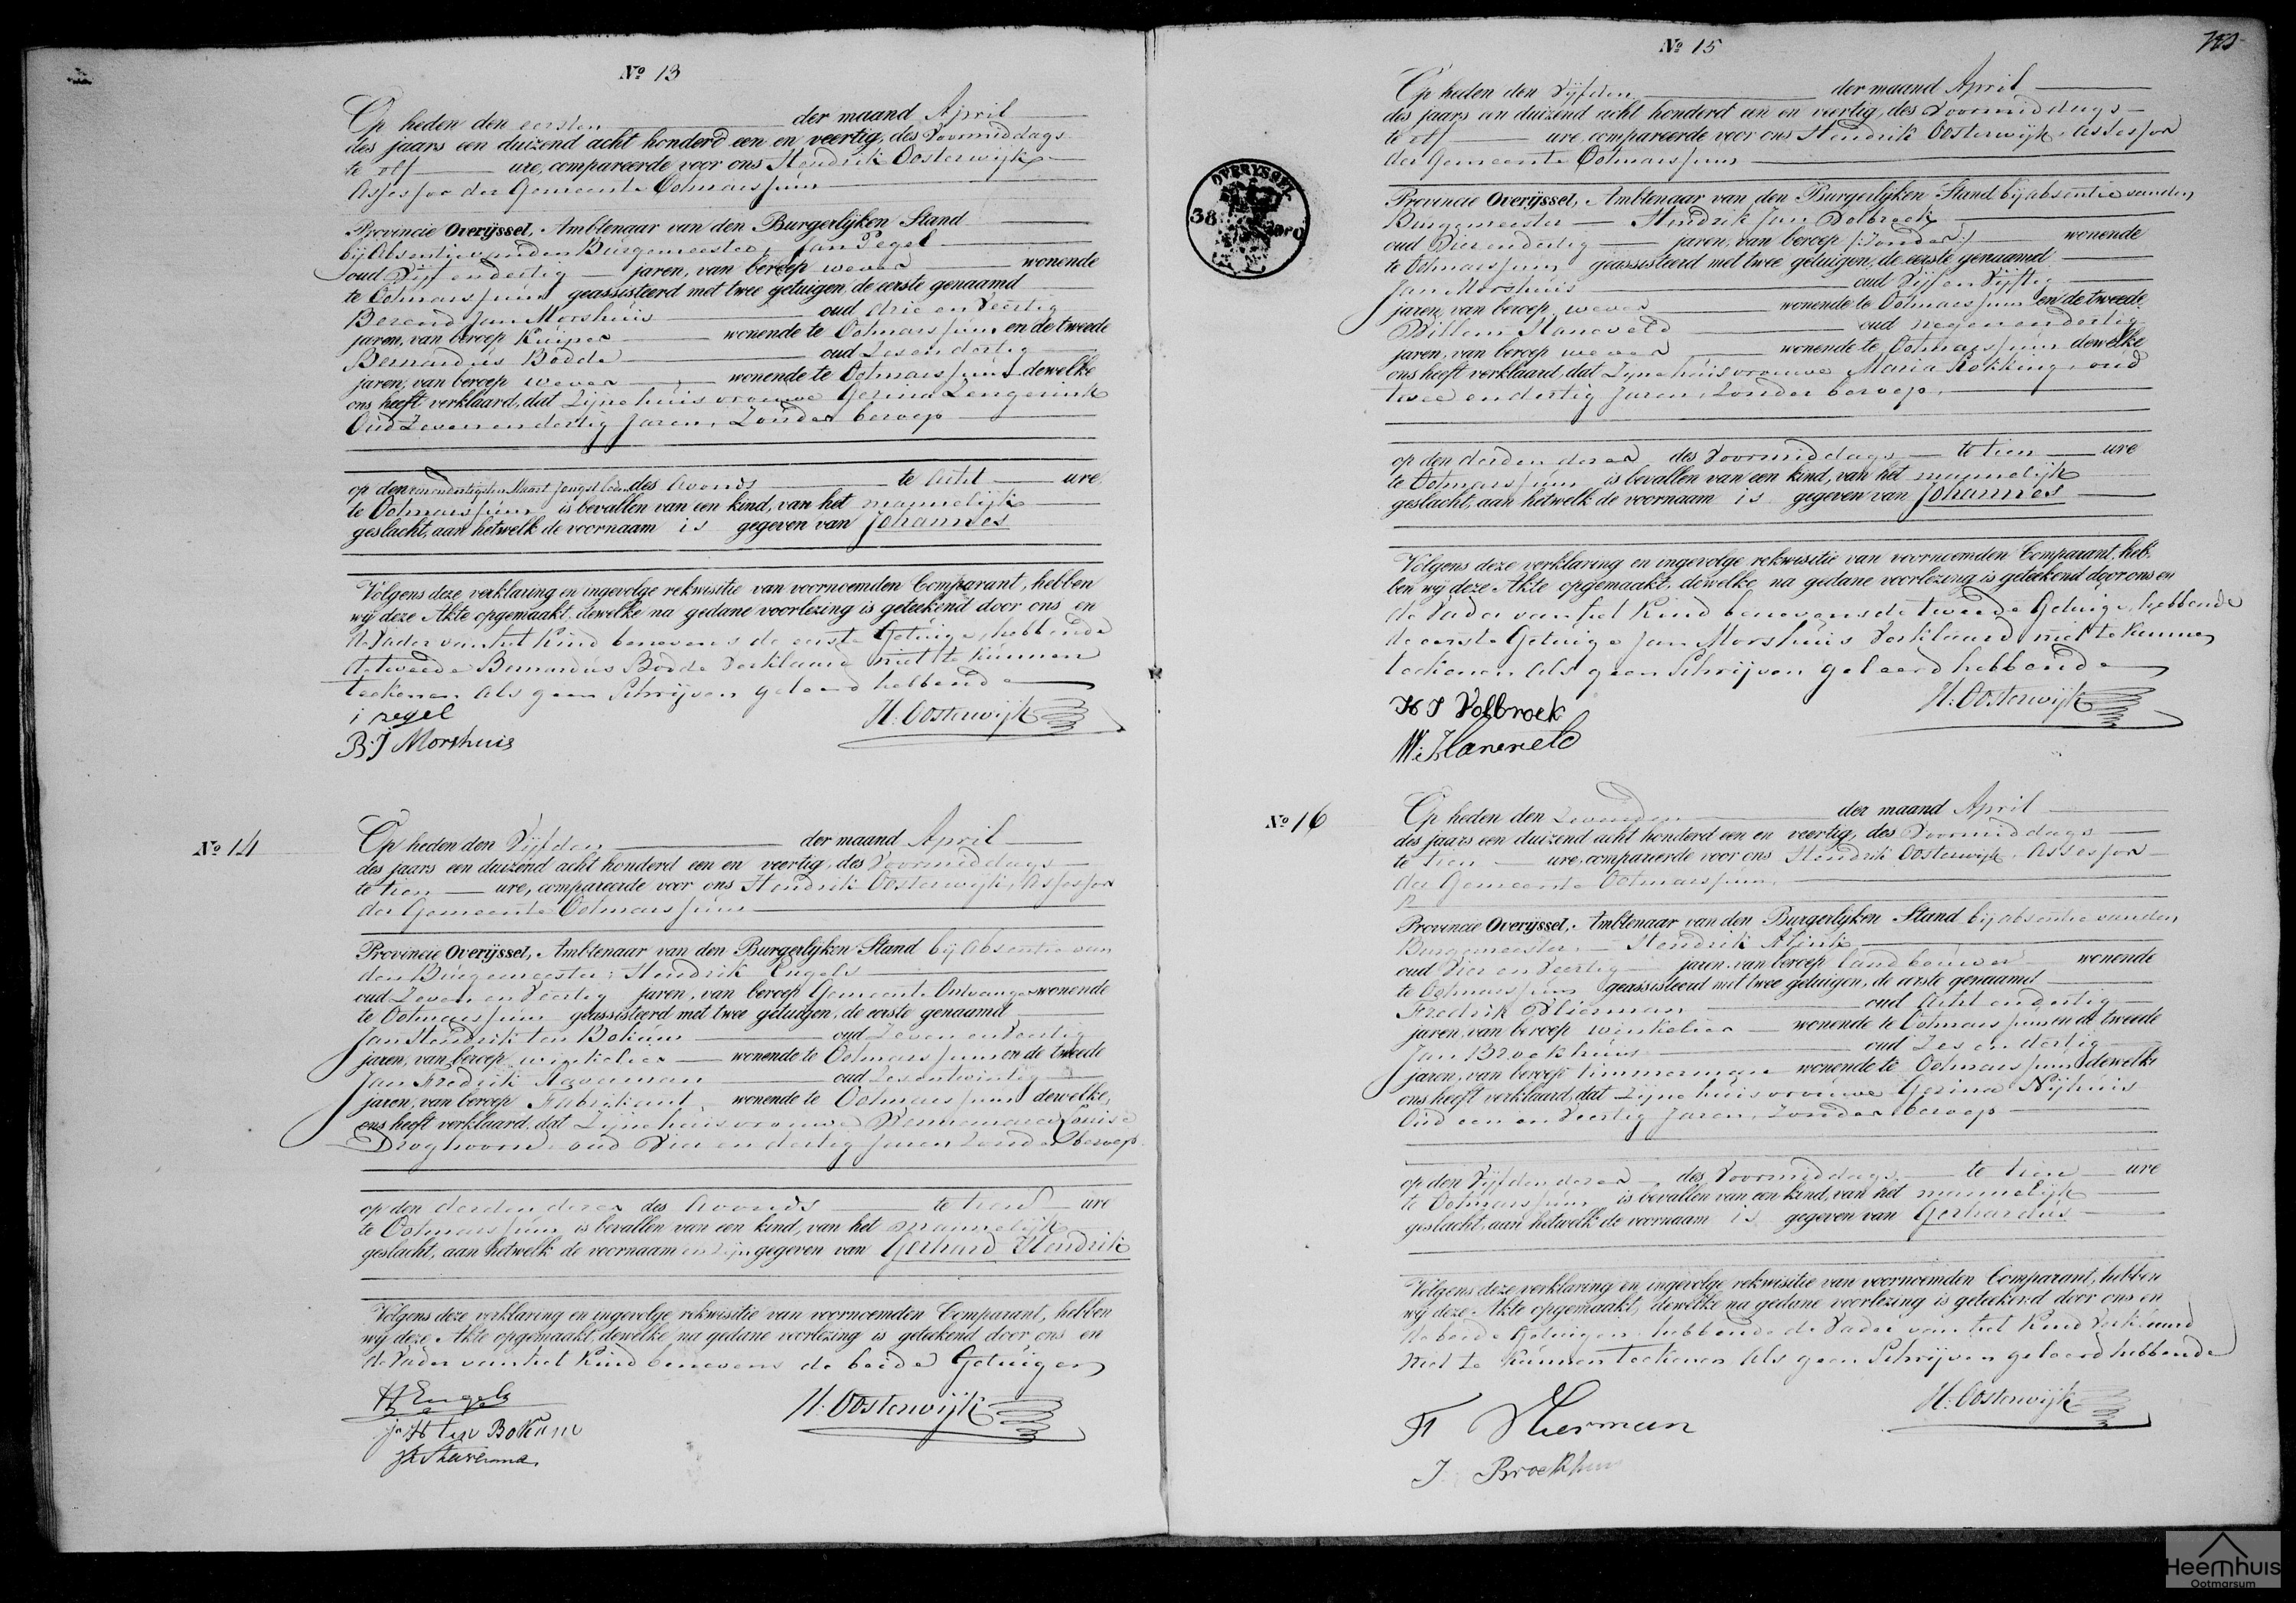 Nº 13
Op heden den eersten der maand April
des jaars een duizend acht honderd een en veertig, des Voormiddags
te elf ure, compareerde voor ons Hendrik Oosterwijk
Assessor der Gemeente Ootmarssum
Provincie Overijssel, Ambtenaar van den Burgerlijken Stand
bij Absentie van den Burgemeester, Jan Pegel
oud Vijf en dertig jaren, van beroep wever wonende
te Ootmarssum geassisteerd met twee getuigen, de eerste genaamd
Berend Jan Morshuis oud drie en Veertig
jaren, van beroep Kuiper wonende te Ootmarssum en de tweede
Bernardus Bodde oud Zes en dertig
jaren, van beroep wever wonende te Ootmarssum dewelke
ons heeft verklaard, dat Zijne huisvrouwe Gesina Lengerink
Oud Zeven en dertig Jaren, Zonder beroep
op den een en dertigsten Maart Jongstleden des Avonds te Acht ure
te Ootmarssum is bevallen van een kind, van het mannelijk
geslacht, aan hetwelk de voornaam is gegeven van Johannes
Volgens deze verklaring en ingevolge rekwisitie van voornoemden Comparant, hebben
wij deze Akte opgemaakt, dewelke na gedane voorlezing is geteekend door ons en
de Vader van het Kind benevens de eerste Getuige, hebbende
de tweede Bernardus Bodde Verklaard niet te kunnen
teekenen Als geen Schrijven geleerd hebbende
j pegel
H. Oosterwijk
B: J Morshuis
Nº 14
Op heden den Vijfden der maand April
des jaars een duizend acht honderd een en veertig, des Voormiddags
te tien ure, compareerde voor ons Hendrik Oosterwijk, Assessor
der Gemeente Ootmarssum
Provincie Overijssel, Ambtenaar van den Burgerlijken Stand bij Absentie van
den Burgemeester; Hendrik Engels
oud Zeven en Veertig jaren, van beroep Gemeente Ontvanger wonende
te Ootmarssum geassisteerd met twee getuigen, de eerste genaamd
Jan Hendrik ten Bokum oud Zeven en Veertig
jaren, van beroep winkelier wonende te Ootmarssum en de tweede
Jan Fredrik Staverman oud Zes en twintig
jaren, van beroep Fabrikant wonende te Ootmarssum dewelke
ons heeft verklaard, dat Zijne huisvrouwe Louise
oud Vier en dertig Jaren Zonder beroep
op den derden dezer des Avonds te tien ure
te Ootmarssum is bevallen van een kind, van het mannelijk
geslacht, aan hetwelk de voornaamen zijn gegeven van Gerhard Hendrik
Volgens deze verklaring en ingevolge rekwisitie van voornoemden Comparant, hebben
wij deze Akte opgemaakt, dewelke na gedane voorlezing is geteekend door ons en
de Vader van het Kind benevens de beide Getuigen
H Engels
H. Oosterwijk
J H ten Bokum
Nº 15
Op heden den Vijfden der maand April
des jaars een duizend acht honderd een en veertig, des Voormiddags
te elf ure, compareerde voor ons Hendrik Oosterwijk, Assessor
der Gemeente Ootmarssum
OVERYSSEL
38
Provincie Overijssel, Ambtenaar van den Burgerlijken Stand bij absentie van den
Burgemeester Hendrik Jan Volbroek
oud Vier en dertig jaren, van beroep /:Zonder:/ wonende
te Ootmarssum geassisteerd met twee getuigen, de eerste genaamd
Jan Morshuis oud Vijf en Vijftig
jaren, van beroep wever wonende te Ootmarssum en de tweede
Willem Haneveld oud negen en dertig
jaren, van beroep wever wonende te Ootmarssum dewelke
ons heeft verklaard dat Zijne huisvrouwe Maria Kokking, oud
twee en dertig Jaren, Zonder beroep
op den derden dezer des Voormiddags te tien ure
te Ootmarssum is bevallen van een kind, van het mannelijk
geslacht, aan hetwelk de voornaam is gegeven van Johannes
Volgens deze verklaring en ingevolge rekwisitie van voornoemden Comparant, heb-
ben wij deze Akte opgemaakt, dewelke na gedane voorlezing is geteekend door ons en
de Vader van het Kind benevens de tweede Getuige, hebbende
de eerste Getuige Jan Morshuis Verklaard niet te kunnen
teekenen Als geen Schrijven geleerd hebbende
H J Volbroek
H. Oosterwijk
W: Haneveld
Nº 16
Op heden den Zevenden der maand April
des jaars een duizend acht honderd een en veertig, des Voormiddags
te tien ure, compareerde voor ons Hendrik Oosterwijk, Assessor
der Gemeente Ootmarssum
Provincie Overijssel, Ambtenaar van den Burgerlijken Stand bij absentie van den
Burgemeester, Hendrik Alink
oud Vier en Veertig jaren, van beroep landbouwer wonende
te Ootmarssum geassisteerd met twee getuigen, de eerste genaamd
Fredrik Vlierman oud Acht en dertig
jaren, van beroep winkelier wonende te Ootmarssum en de tweede
Jan Broekhuis oud Zes en dertig
jaren, van beroep timmerman wonende te Ootmarssum dewelke
ons heeft verklaard, dat Zijne huisvrouwe Gesina Nijhuis
Oud een en Veertig Jaren, Zonder beroep
op den Vijfden dezer des Voormiddags te tien ure
te Ootmarssum is bevallen van een kind, van het mannelijk
geslacht, aan hetwelk de voornaam is gegeven van Gerhardus
Volgens deze verklaring en ingevolge rekwisitie van voornoemden Comparant, hebben
wij deze Akte opgemaakt, dewelke na gedane voorlezing is geteekend door ons en
de beide Getuigen hebbende de Vader van het Kind Verklaard
niet te kunnen teekenen Als geen Schrijven geleerd hebbende
H. Oosterwijk
F Vlierman
J. Broekhuis
Heemhuis
Ootmarsum